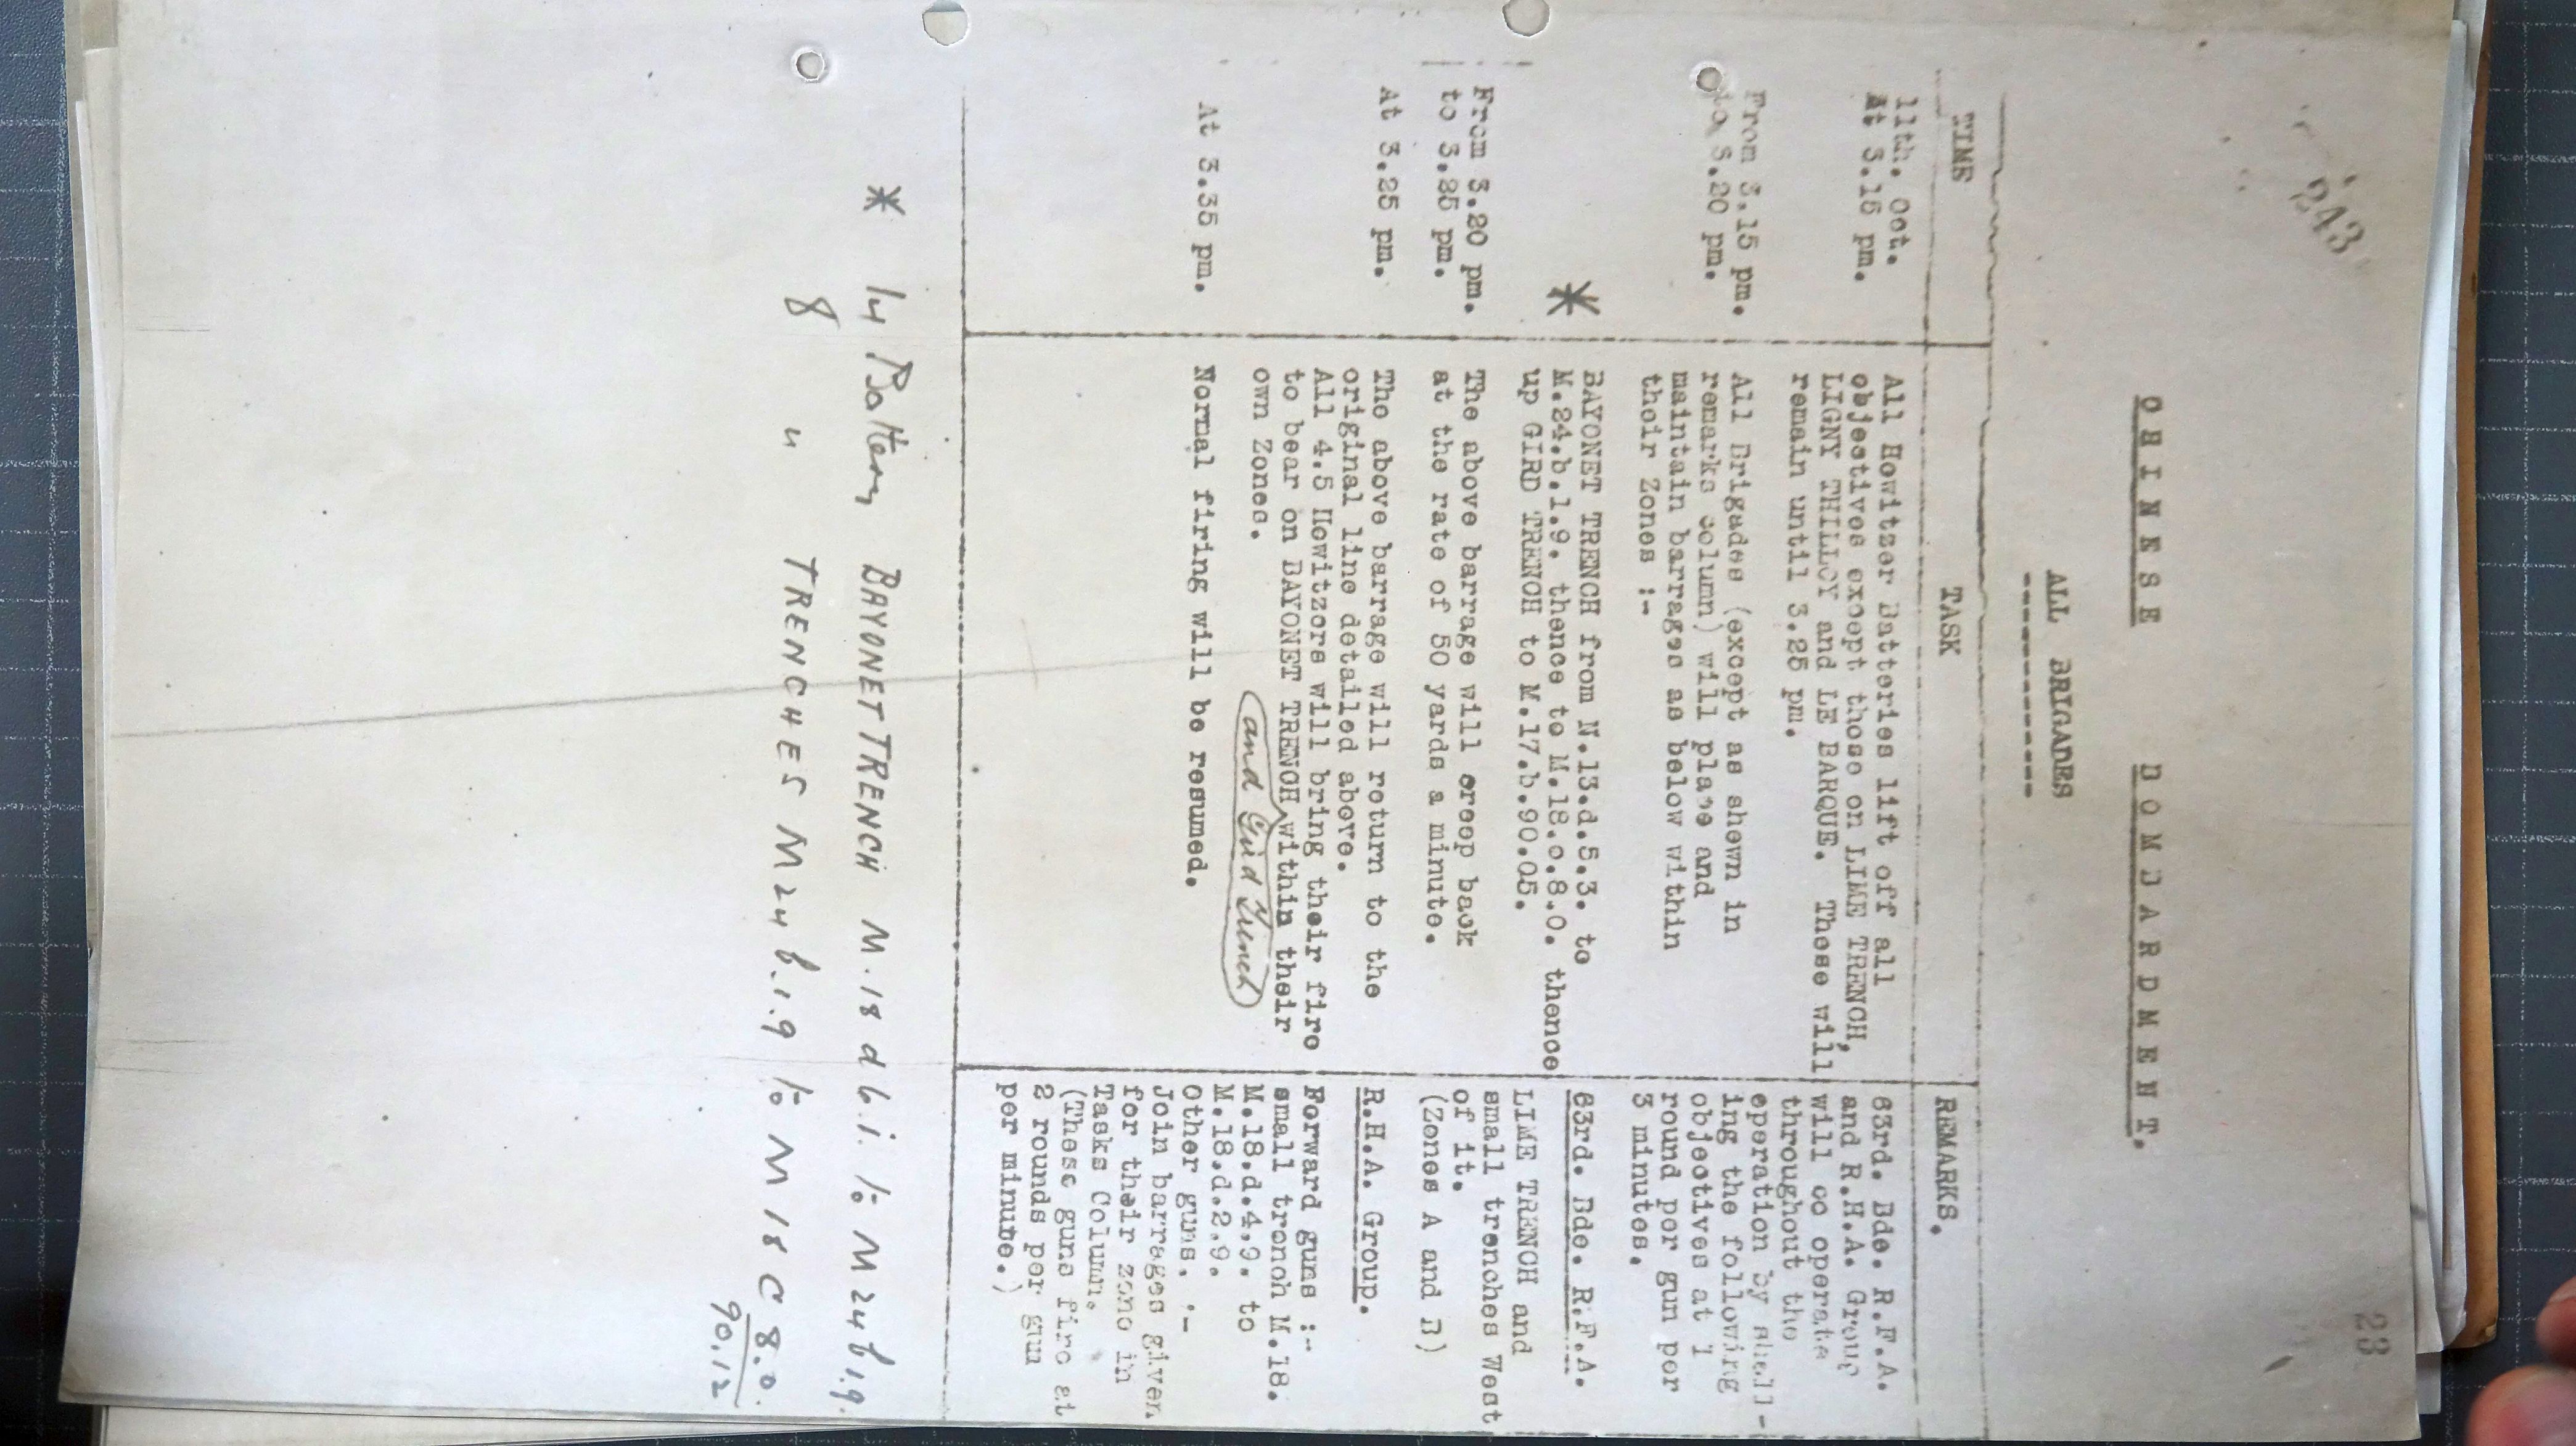 243
23
CHINESE BOMBARDMENT.
ALL BRIGADES
TIME
TASK
REMARKS.
11th. Oct.
At 3.15 pm.
All Howitzer Batteries lift off all
objectives except those on LIME TRENCH,
LIGNY THILLOY and LE BARQUE. These will
remain until 3.25 pm.
From 3.15 pm.
to 3.20 pm.
All Brigades (except as shewn in
remarks column) will place and
maintain barrages as below within
their Zones :-
*
BAYONET TRENCH from N.13.d.5.3. to
M.24.b.1.9. thence to M.18.c.8.0. thence
up GIRD TRENCH to M.17.b.90.05.
From 3.20 pm.
to 3.25 pm.
The above barrage will creep back
at the rate of 50 yards a minute.
At 3.25 pm.
The above barrage will return to the
original line detailed above.
All 4.5 Howitzers will bring their fire
to bear on BAYONET TRENCH within their
own Zones.
and Gird Trench
At 3.35 pm.
Normal firing will be resumed.
63rd. Bde. R.F.A.
and R.H.A. Group
will co operate
throughout the
operation by shell-
ing the following
objectives at 1
round per gun per
3 minutes.
63rd. Bde. R.F.A.
LIME TRENCH and
small trenches West
of it.
(Zones A and B)
R.H.A. Group.
Forward guns :-
small trench M.18.
M.18.d.4.9. to
M.18.d.2.9.
Other guns. :-
Join barrages given
for their zone in
Tasks Column.
(These guns fire at
2 rounds per gun
per minute.)
* 14 Battery BAYONET TRENCH M.18 d 6.1. to M 24 b 1.9.
8 " TRENCHES M 24 b.1.9 to M 18 C 8.0.
90.12